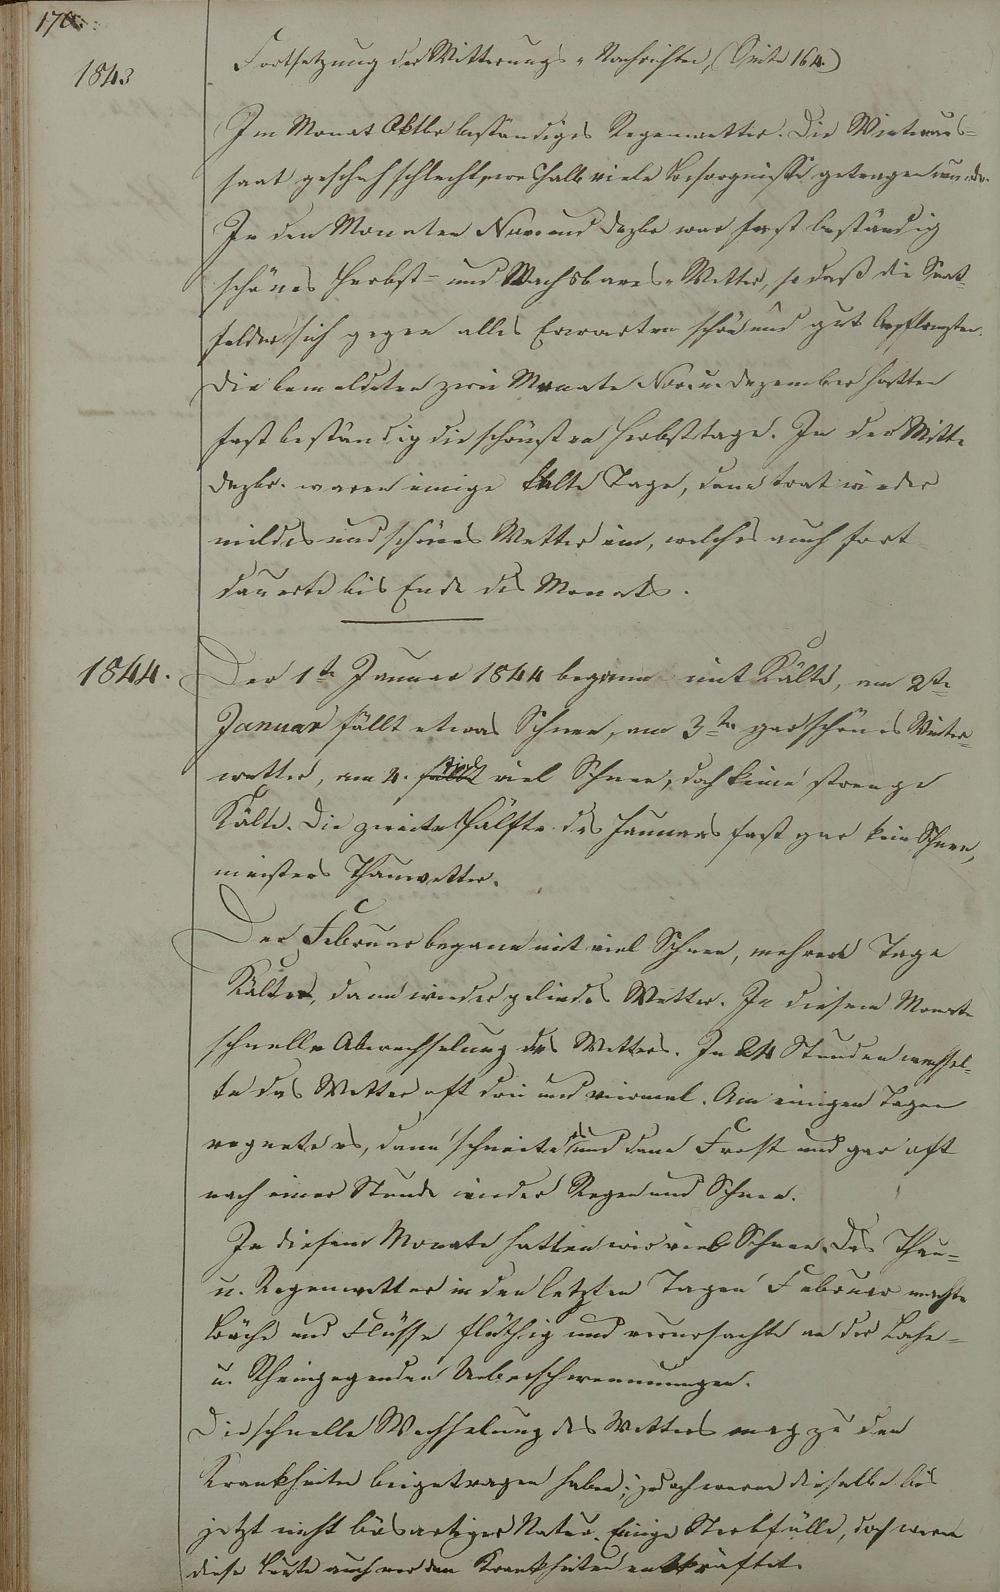 170.
Fortsetzung der Witterungs-Nachrichten, (Seite 164.)
1843
Im Monat Oktbr beständiges Regenwetter. Die Winteraus-
saat geschah schlecht, weshalb viele Besorgnisse getragen wurde.
In den Monaten Nov. und Dezbr war fast beständig
schönes Herbst- und Wachsbares-Wetter, so daß die Saat-
felder sich gegen alles Erwarten schön und gut bepflanzten.
Die bemeldeten zwei Monate Nov. u. Dezember hatten
fast beständig die schönsten Herbsttage. In der Mitte
Dezbr. waren einige kalte Tage, dann trat wieder
mildes und schönes Wetter ein, welches auch fort-
dauerte bis Ende des Monats.
1844.
Der 1te Januar 1844 begann mit Kälte, am 2te
Januar fällt etwas Schnee, am 3ten gar schönes Winter-
wetter, am 4. fällt viel Schnee, doch keine strenge
Kälte. Die zweite Hälfte des Januars fast gar kein Schnee,
meistens Thauwetter.
Der Februar begann mit viel Schnee, mehrere Tage
Kälte, dann wieder gelindes Wetter. In diesem Monate
schnelle Abwechselung des Wetters. In 24 Stunden wechsel-
te das Wetter oft drei und viermal. Am einigen Tagen
regnete es, dann schneite es und dann Frost und gar oft
nach einer Stunde wieder Regen und Schnee.
In diesem Monate hatten wir viel Schnee. Das Thau-
u. Regenwetter in den letzten Tagen Februar machte
Bäche und Flüsse fluthig und verursachte an der Lahn-
u. Rheingegenden Ueberschwemmungen.
Die schnelle Wechselung des Wetters mag zu den
Krankheiten beigetragen haben; jedoch waren dieselbe bis
jetzt nicht bösartiger Natur. Einige Sterbfälle, doch waren
diese Leute auch vor den Krankheiten entkräftet.